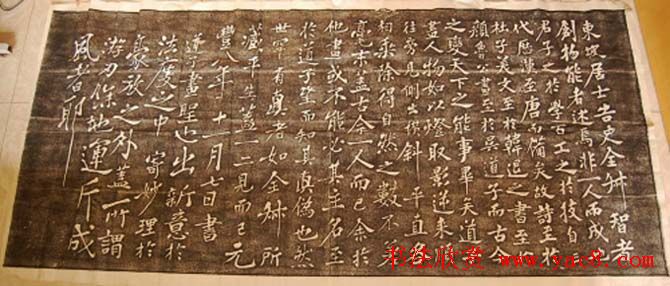 東坡居士告史全叔智者
創物能者述焉非一人而成也
君子之於學百工之於技自三
代歷漢至唐而備矣故詩至於
杜子美文至於韓退之書至於
顏魯公畫至於吳道子而古今
之變天下之能事畢矣道子
畫人物如以燈取影逆来順
往旁見側出橫斜平直各
相乘除得自然之數不差
毫末盖古今一人而已余於
他畫或不能必其主名至
於道子望而知其真偽也然
世罕有真者如全叔所
藏平生盖一二見而已元
豐八年十一月七日書
道子畫聖也出新意於
法度之中寄妙理於
豪放之外盖所謂
游刃餘地運斤成
風者耶
书法欣赏
www.yac8.com